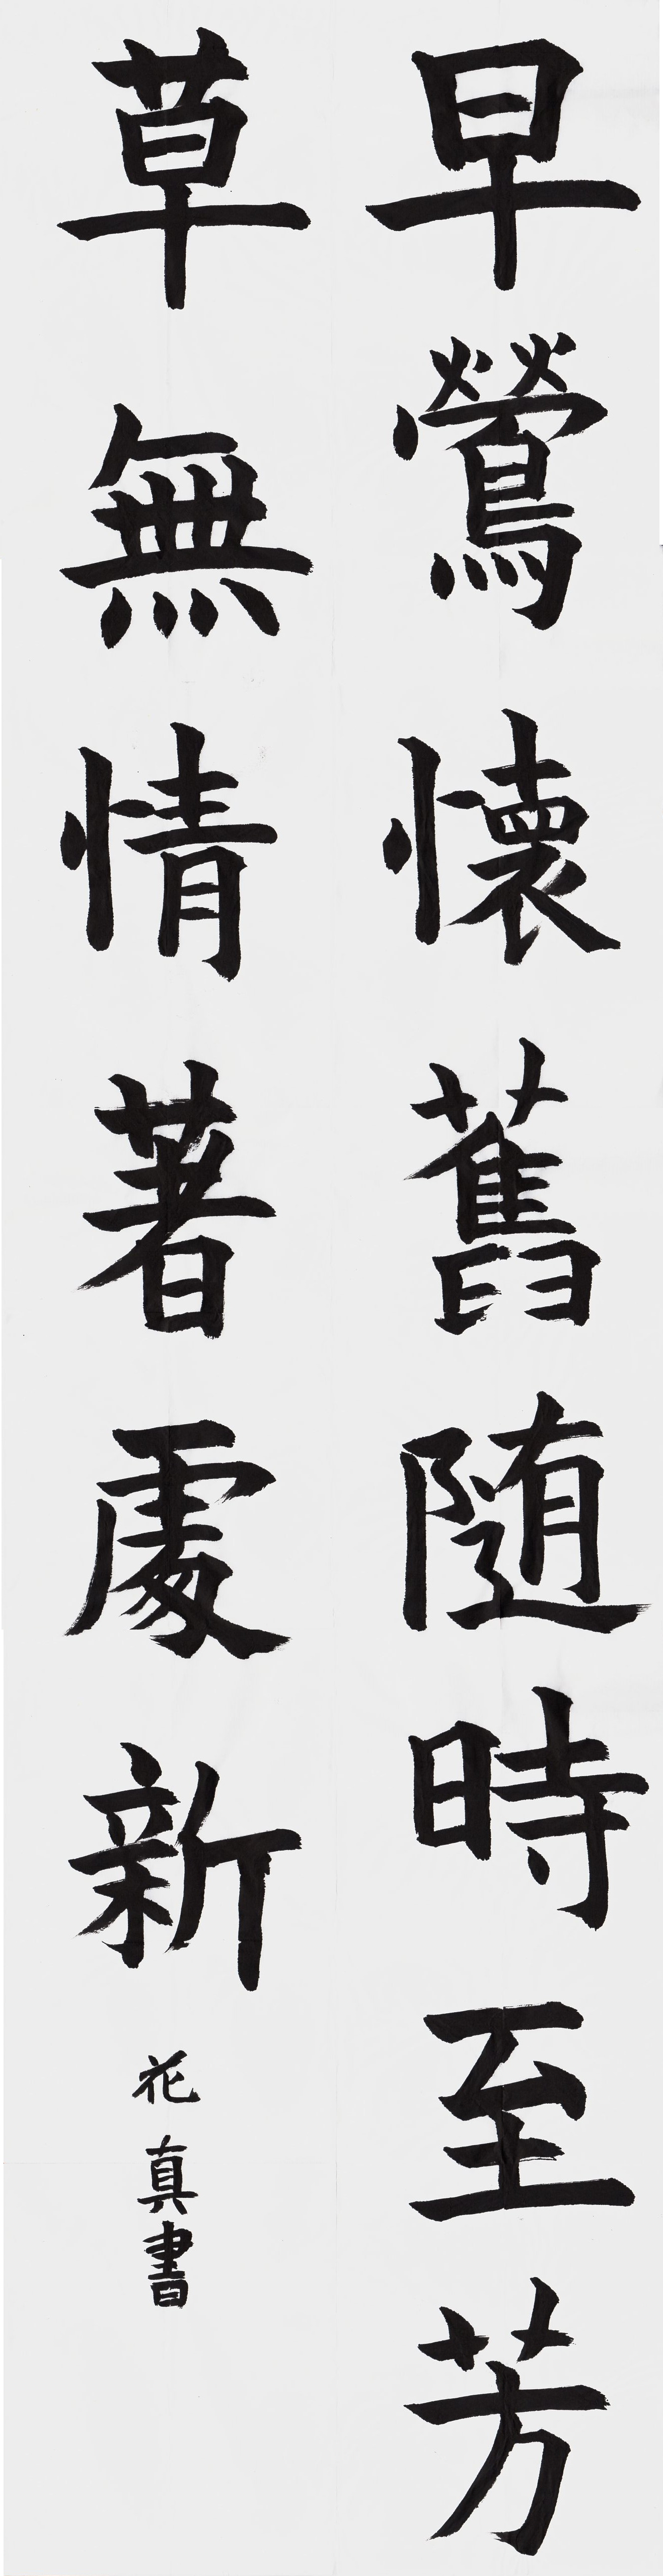 早鶯懐舊随時至芳
草無情著處新
花真書